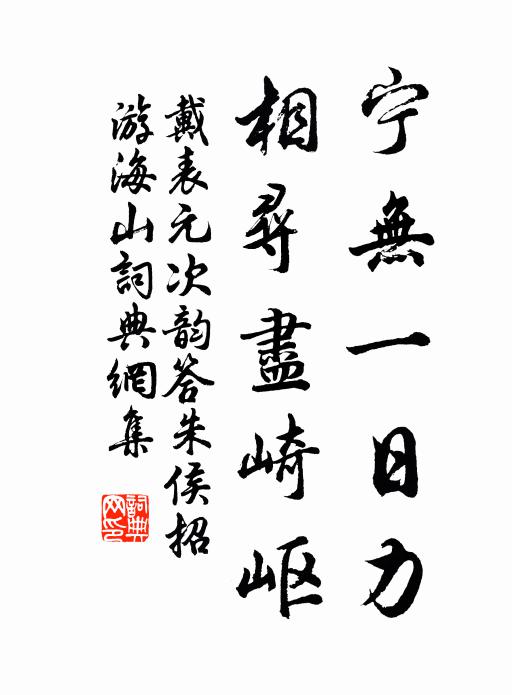 宁無一日力
相尋盡崎岖
戴表元次韵答朱侯招
游海山詞典網集
詞典网印